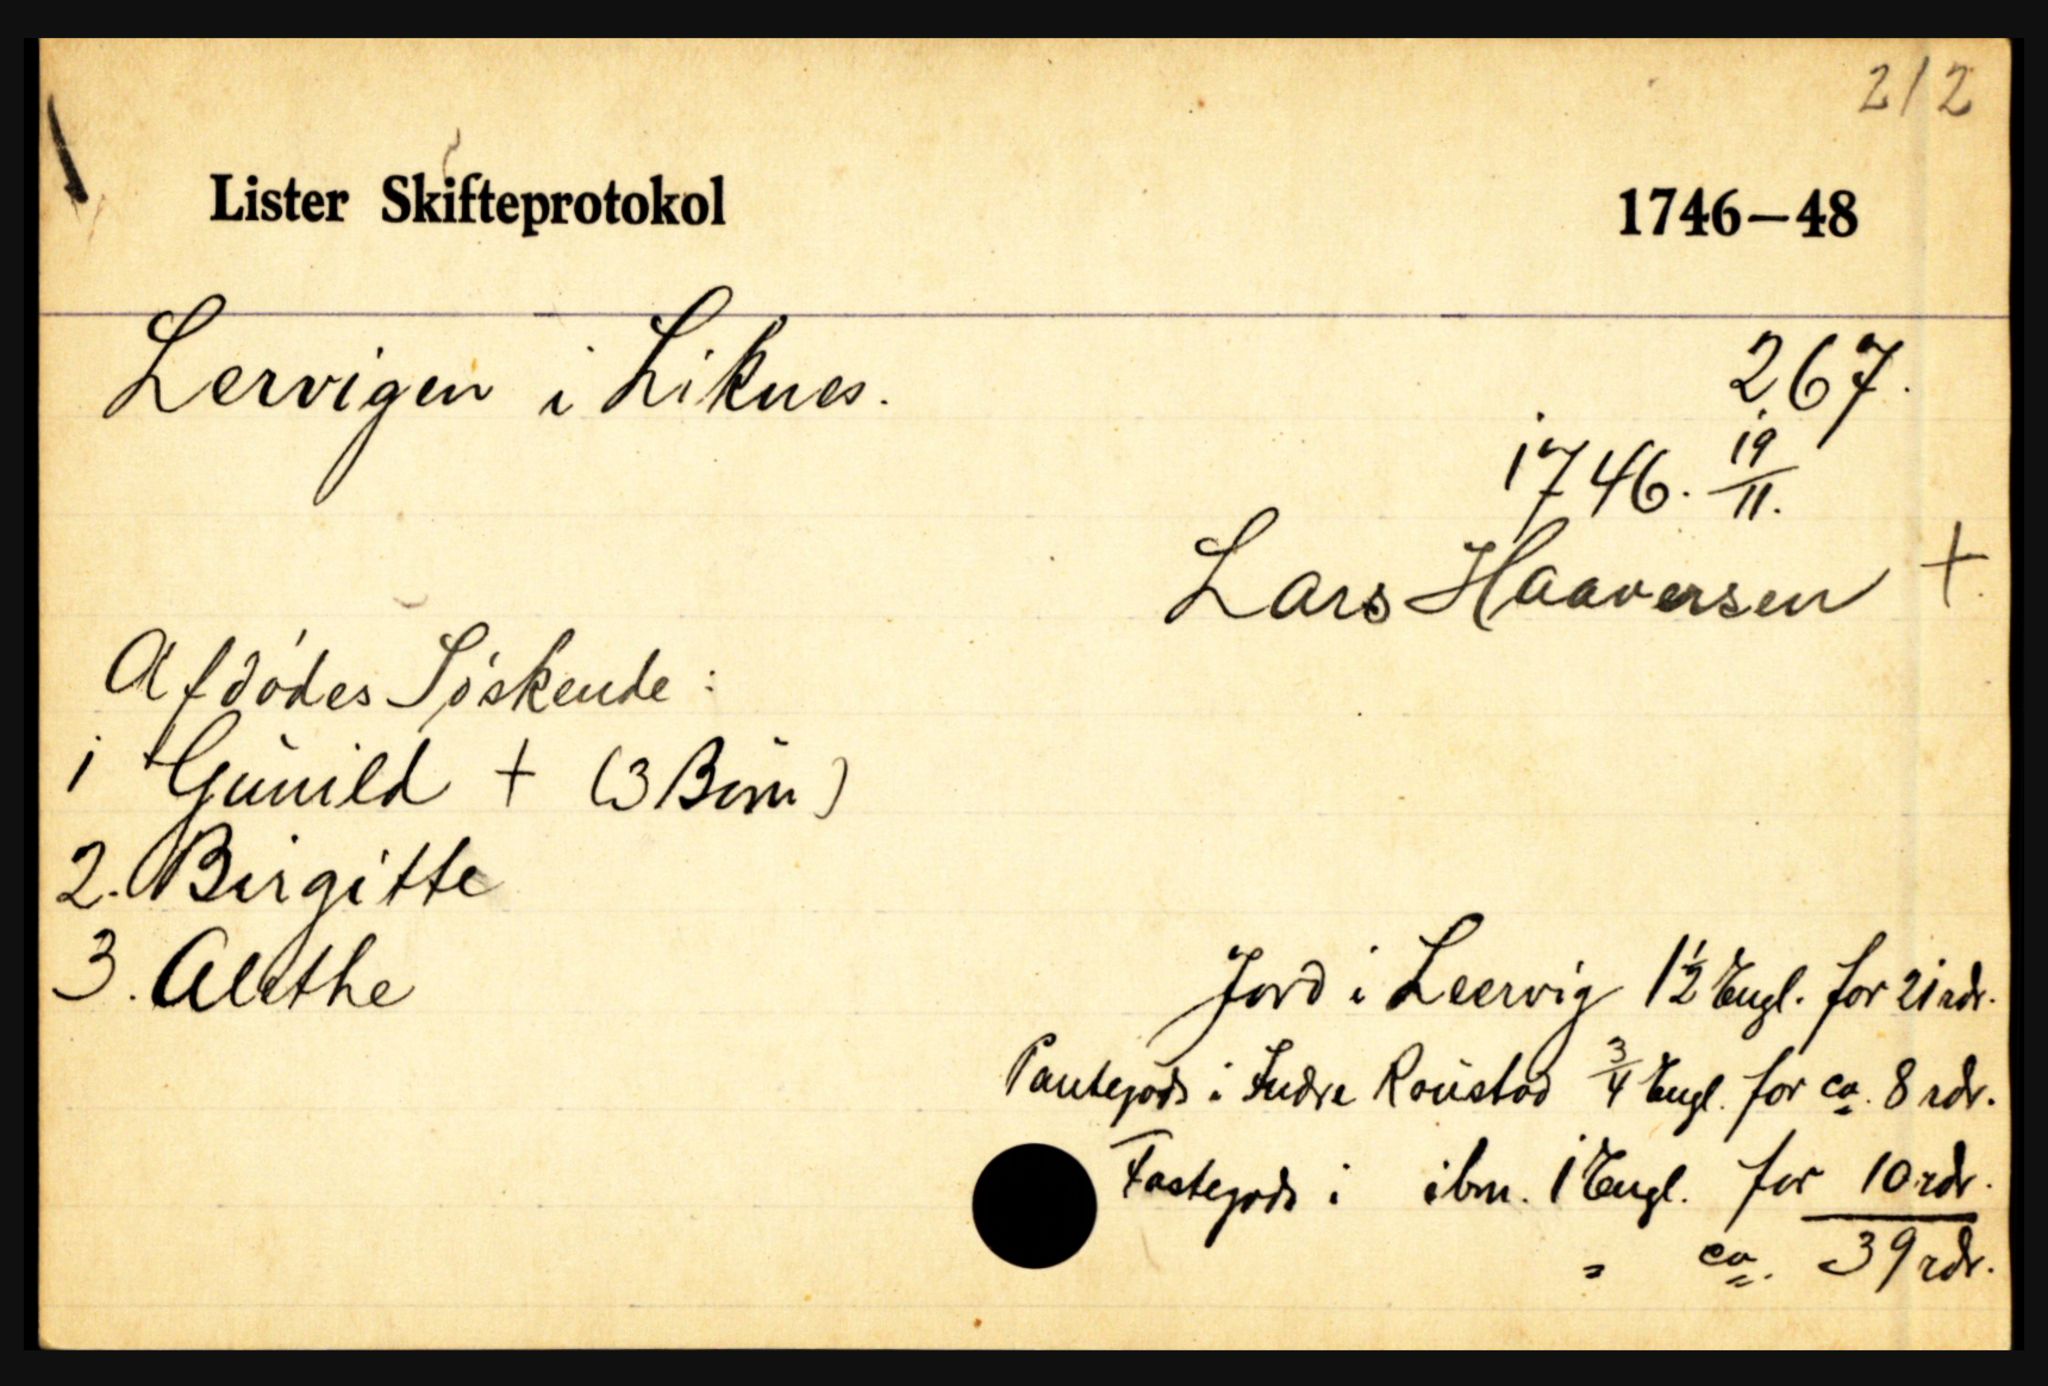 212
Lister Skifteprotokol 1746–48
Lervigen i Liknes. 267.
1746. 19/11.
Lars Haaversen +
Afdódes Söskende:
1 Gunild + (3 Börn)
2. Birgitte
3. Alethe
Jord i Leervig 1½ Engl. for 21 rdr.
Pantegods i Indre Roustad ¾ Engl. for ca. 8 rdr.
Fastegods i ibm. 1 Engl. for 10 rdr.
= ca. 39 rdr.